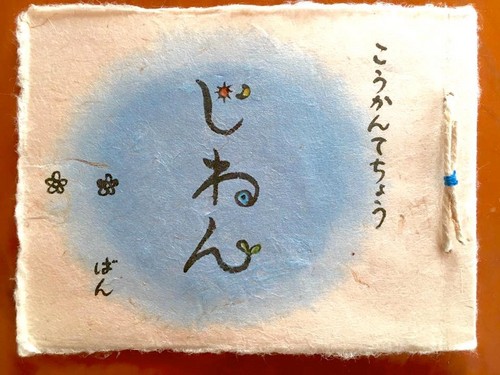 こうかんてちょう
じわん
ばん